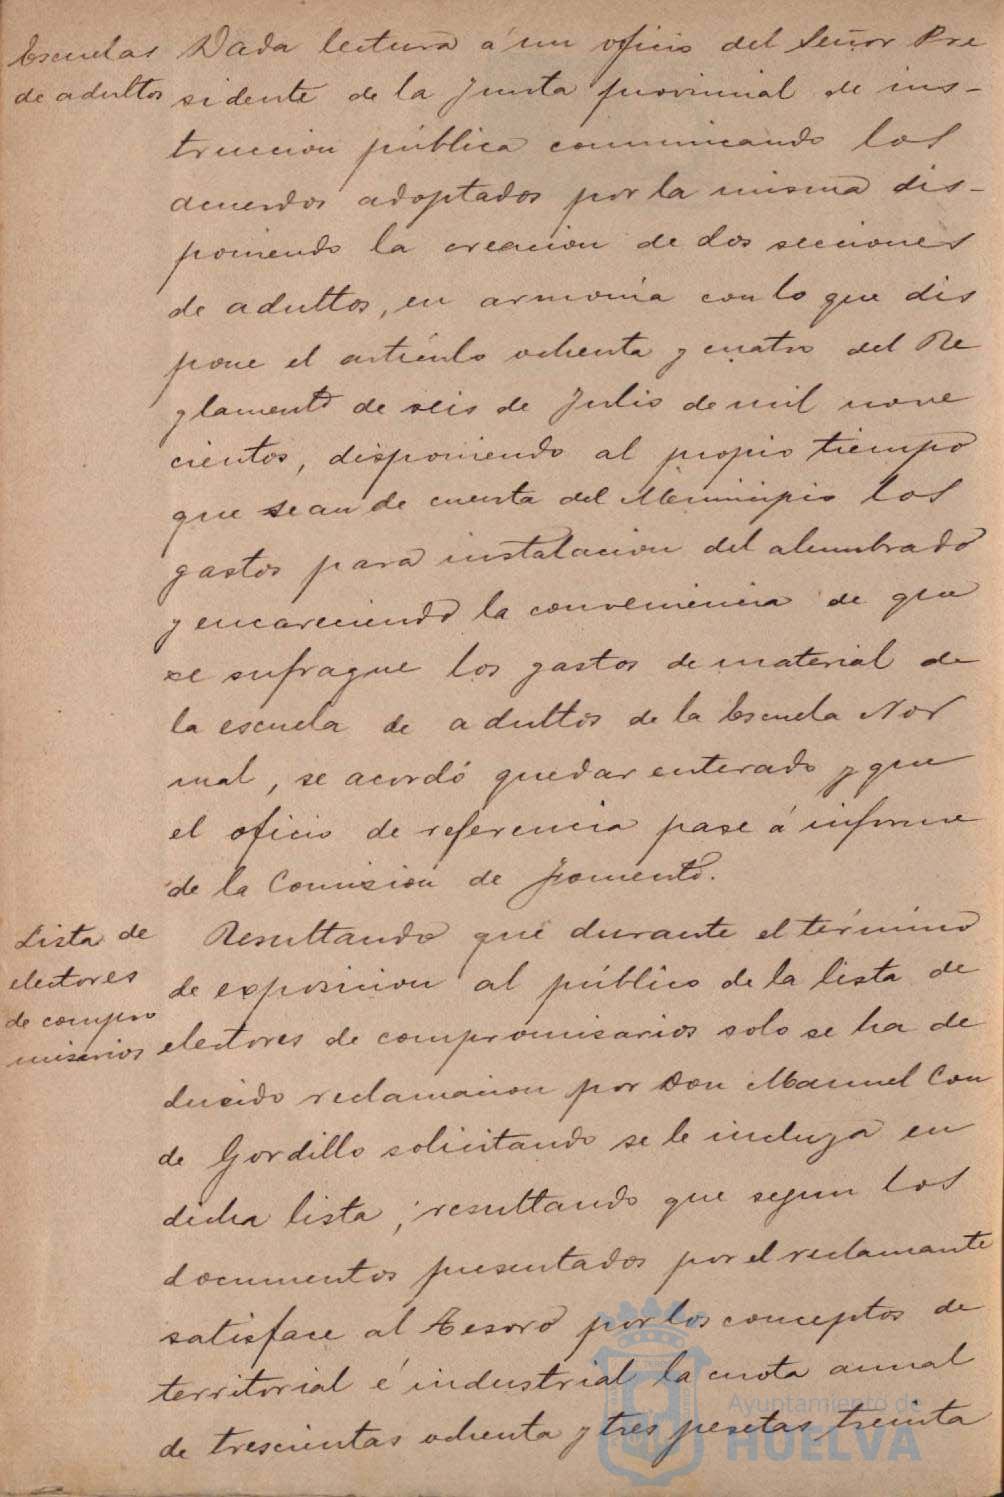 Escuelas
de adultos
Dada lectura á un oficio del Señor Pre
sidente de la Junta provincial de ins-
truccion pública comunicando los
acuerdos adoptados por la misma dis-
poniendo la creacion de dos secciones
de adultos, en armonía con lo que dis
pone el artículo ochenta y cuatro del Re
glamento de seis de Julio de mil nove
cientos, disponiendo al propio tiempo
que sean de cuenta del Municipio los
gastos para instalacion del alumbrado
y encareciendo la conveniencia de que
se sufrague los gastos de material de
la escuela de adultos de la Escuela Nor
mal, se acordó quedar enterado y que
el oficio de referencia pase á informe
de la Comision de Fomento.
Lista de
electores
de compro
misarios
Resultando que durante el término
de exposicion al público de la lista de
electores de compromisarios solo se ha de
ducido reclamacion por Don Manuel Con
de Gordillo solicitando se le incluya en
dicha lista, resultando que segun los
documentos presentados por el reclamante
satisface al Tesoro por los conceptos de
territorial é industrial la cuota anual
de trescientas ochenta y tres pesetas treinta
Ayuntamiento de
HUELVA